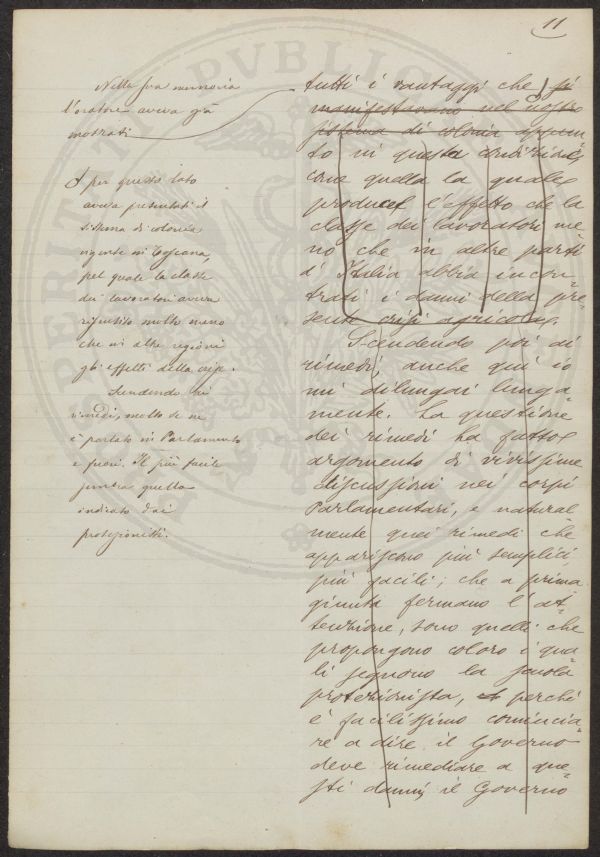 11
Nella sua memoria
l'oratore aveva già
mostrati
tutti i vantaggi che si
manifestavano nel nostro
sistema di colonia appun-
to in questa condizione
come quella la quale
produce l'effetto che la
classe dei lavoratori me-
no che in altre parti
d'Italia abbia incon-
trati i danni della pre-
sente crisi agricola.
Scendendo poi ai
rimedi, anche qui io
mi dilungai lunga-
mente. La questione
dei rimedi ha fatto
argomento di vivissime
discussioni nei corpi
Parlamentari, e natural
mente quei rimedi che
appariscono più semplici
più facili; che a prima
giunta fermano l'at-
tenzione, sono quelli che
propongono coloro i qua-
li seguono la scuola
protezionista, perchè
è facilissimo comincia-
re a dire il Governo
deve rimediare a que-
sti danni, il Governo
per questo lato
aveva presentati il
sistema di colonia
vigente in Toscana,
pel quale la classe
dei lavoratori aveva
risentito molto meno
che in altre regioni
gli effetti della crisi.
Scendendo ai
rimedi, molto se ne
è parlato in Parlamento
e fuori. Il più facile
quello
indicato dai
protezionisti.
PVBLIC